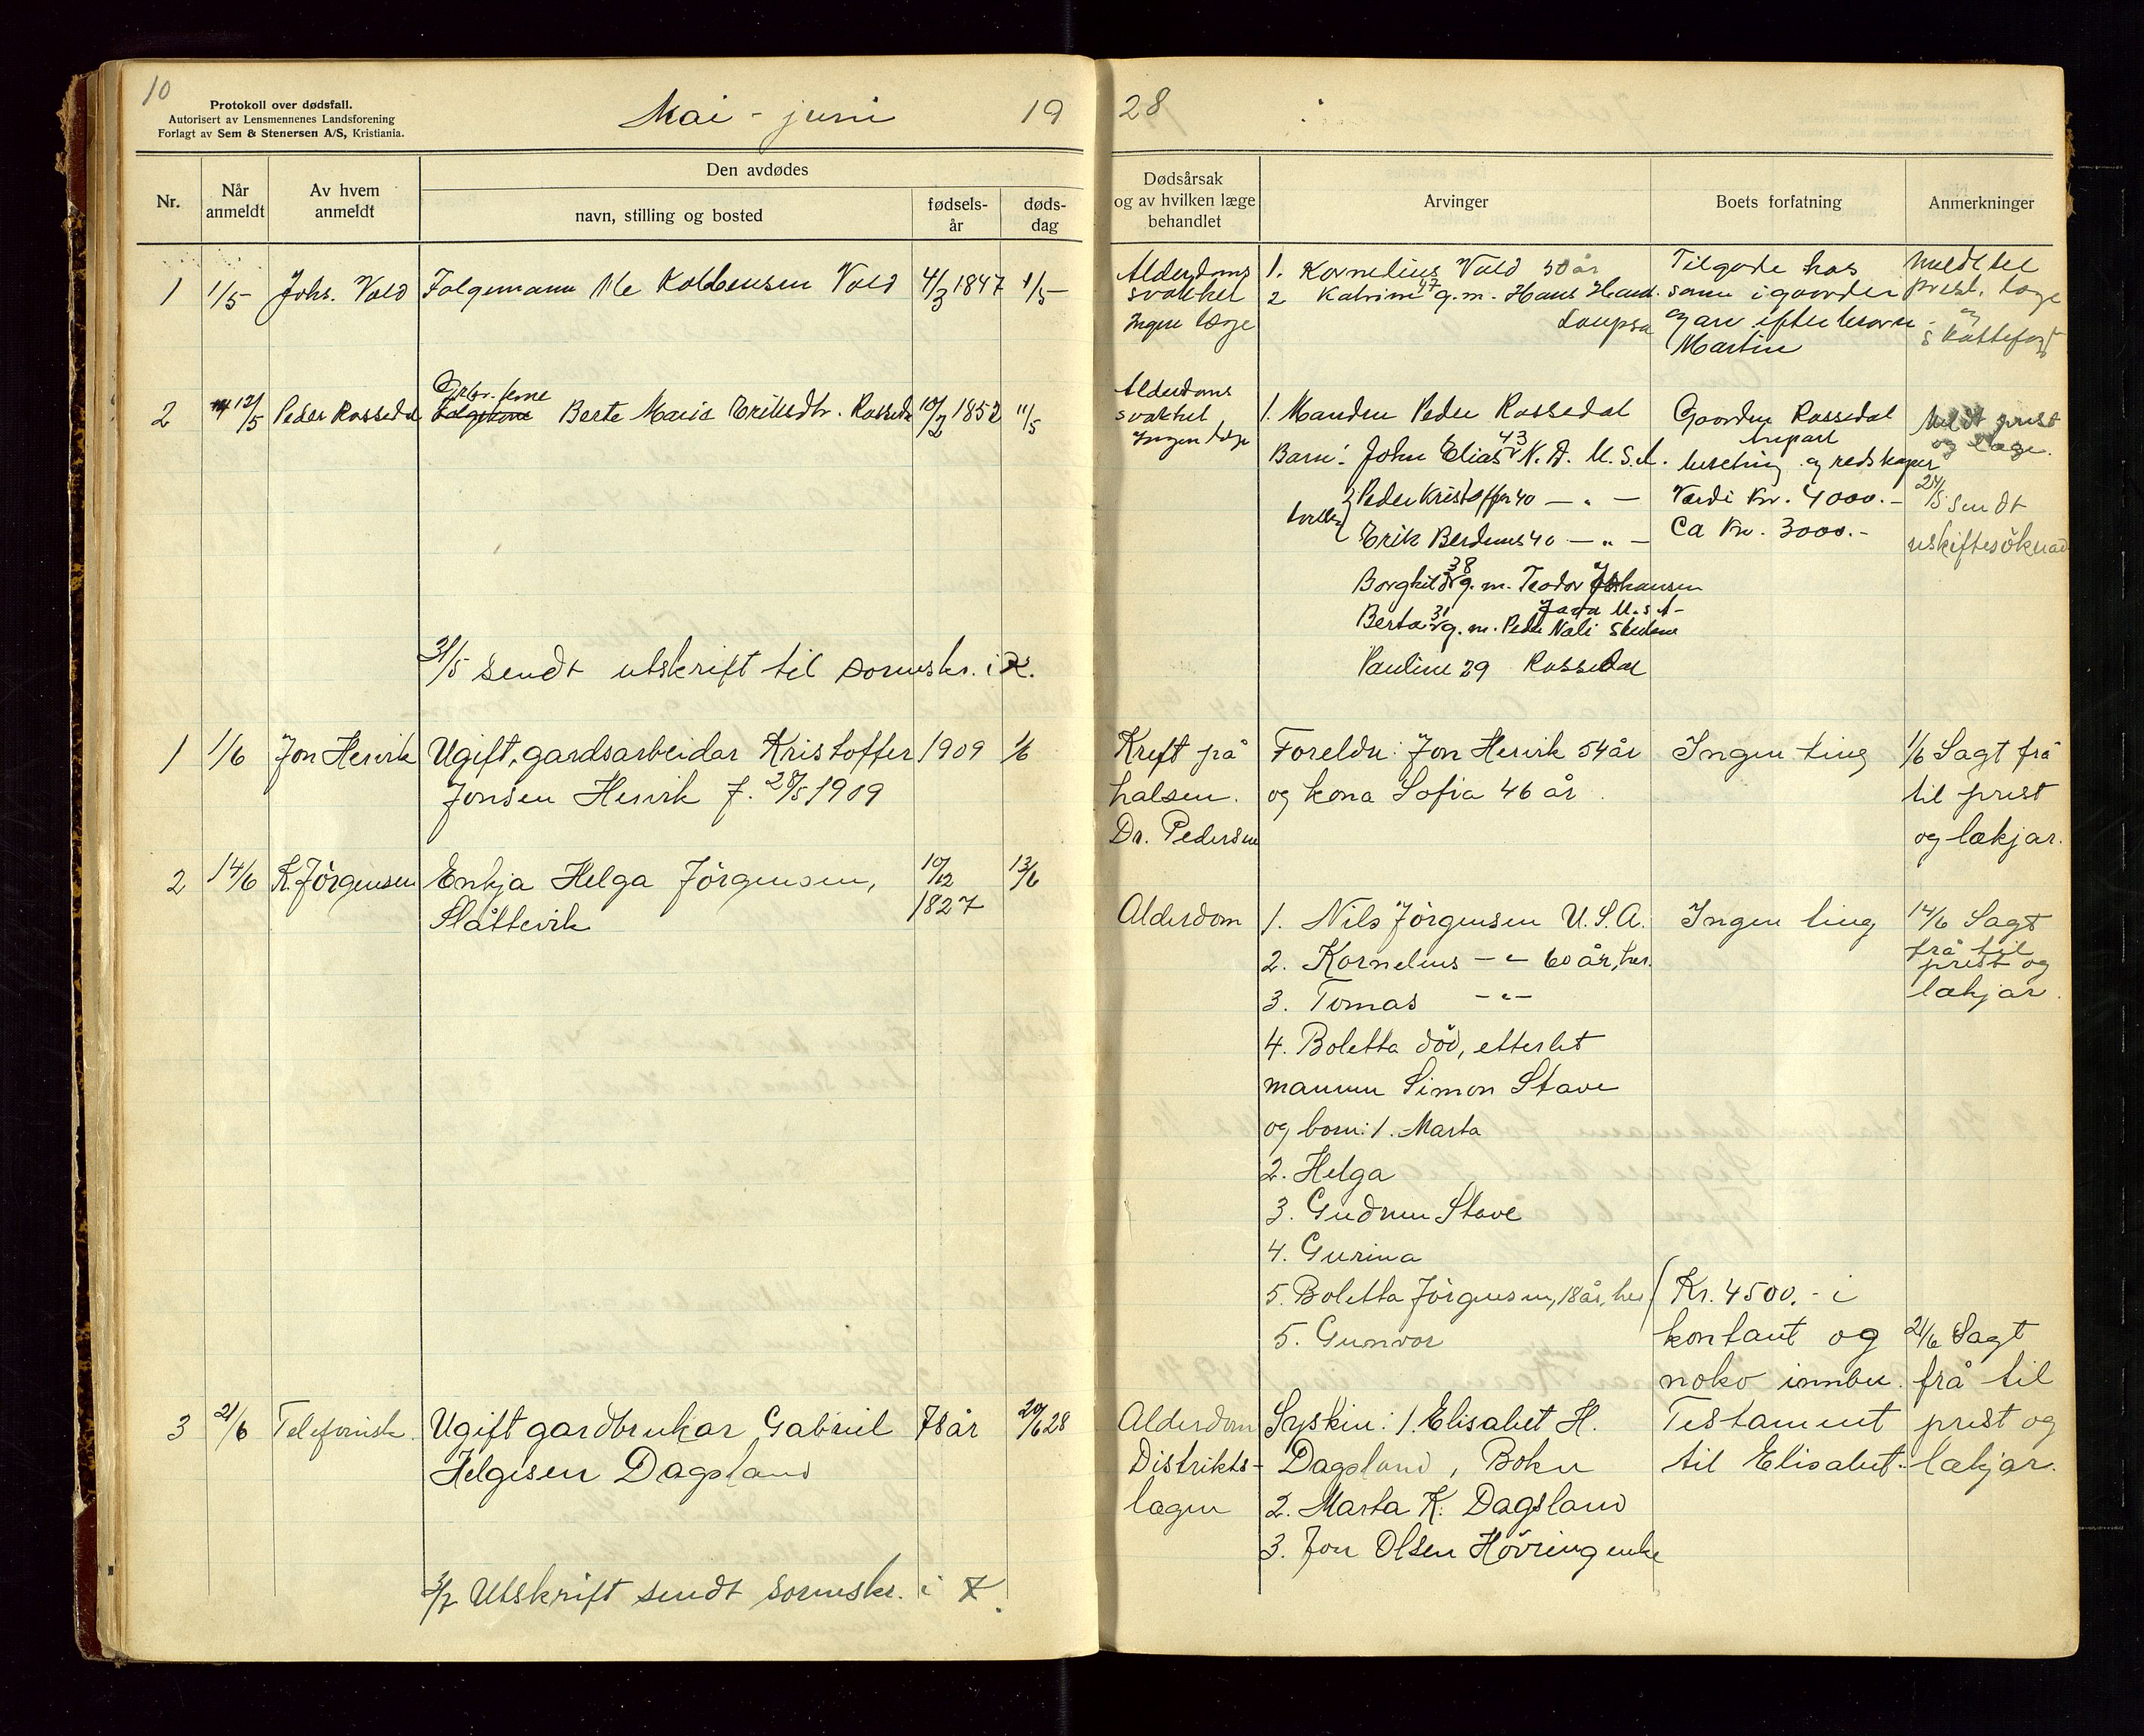 10
Protokoll over dødsfall.
Autorisert av Lensmennenes Landsforening
Forlagt av Sem & Stenersen A/S, Kristiania.
Mai - juni 19
Nr.
Når anmeldt
Av hvem anmeldt
Den avdødes
navn, stilling og bosted
fødsels-år
døds-dag
1 1/5 Johs. Vold Folgemann Ole Kolbensen Vold 4/3 1847 1/5
Grbr. kone
2 12/5 Peder Rossedal Folgekone Berte Maria Eriksdtr. Rossedal 10/2 1852 11/5
31/5 sendt utskrift til sornskr. i R.
1 1/6 Jon Hervik Ugift, gardsarbeidar Kristoffer 1909 1/6
Jonsen Hervik f. 28/5 1909
2 14/6 K. Jörgensen Enkja Helga Jörgensen, 10/12 13/6
Slåttevik 1827
3 21/6 Telefonisk Ugift gardbrukar Gabriel 78 år 20/6 28
Helgesen Dagsland
3/7 Utskrift sendt sornskr. i
28
Dødsårsak
og av hvilken læge
behandlet
Arvinger
Boets forfatning
Anmerkninger
Alderdoms 1. Kornelius Vold 50 år Tilgode hos Meldt til
svakhet 2 Katrine 47 g. m. Hans Hard. i gaarden prest, læge
Ingen læge og arv efter og
Martin skattefogd
Alderdoms
svakhet 1. Manden Peder Rossedal Gaarden Rossedal Meldt prest
Ingen læge
Barn: John Elias 43 N. D. U. S. A. og redskaper og læge.
Peder Kristoffer 40 — „ — Verdi Kr. 4000.— 24/5 sendt
Erik Berdinus 40 — „ — Ca Kr. 3000.- uskiftesöknad
Borghild 38 g. m. Teodor Johansen
Jara U. S. A-
Berta 31 g. m. Peder Nali
Pauline 29 Rossedal
Kreft på Foreldre: Jon Hervik 54 år Ingen ting 1/6 Sagt frå
halsen. og kona Sofia 46 år. til prest
Dr. Pedersen og lækjar.
Alderdom 1. Nils Jörgensen U. S. A. Ingen ting 14/6 Sagt
2. Kornelius — „ — 60 år, her. frå til prest og
3. Tomas — „ — lækjar.
4. Boletta död, etterlet
mannen Simon Stave
og born: 1. Marta
2. Helga
3. Gudrun Stave
4. Gurina
5. Boletta Jörgensen, 18 år, her (Kr. 4500.- i
5. Gunvor kontant og 21/6 Sagt
noko innbu. frå til
Alderdom Syskin: 1. Elisabet H. Testament prest og
Distrikts- Dagsland, Bokn til Elisabet. lækjar.
lægen 2. Marta K. Dagsland
3. Jon Olsen Hövring enke